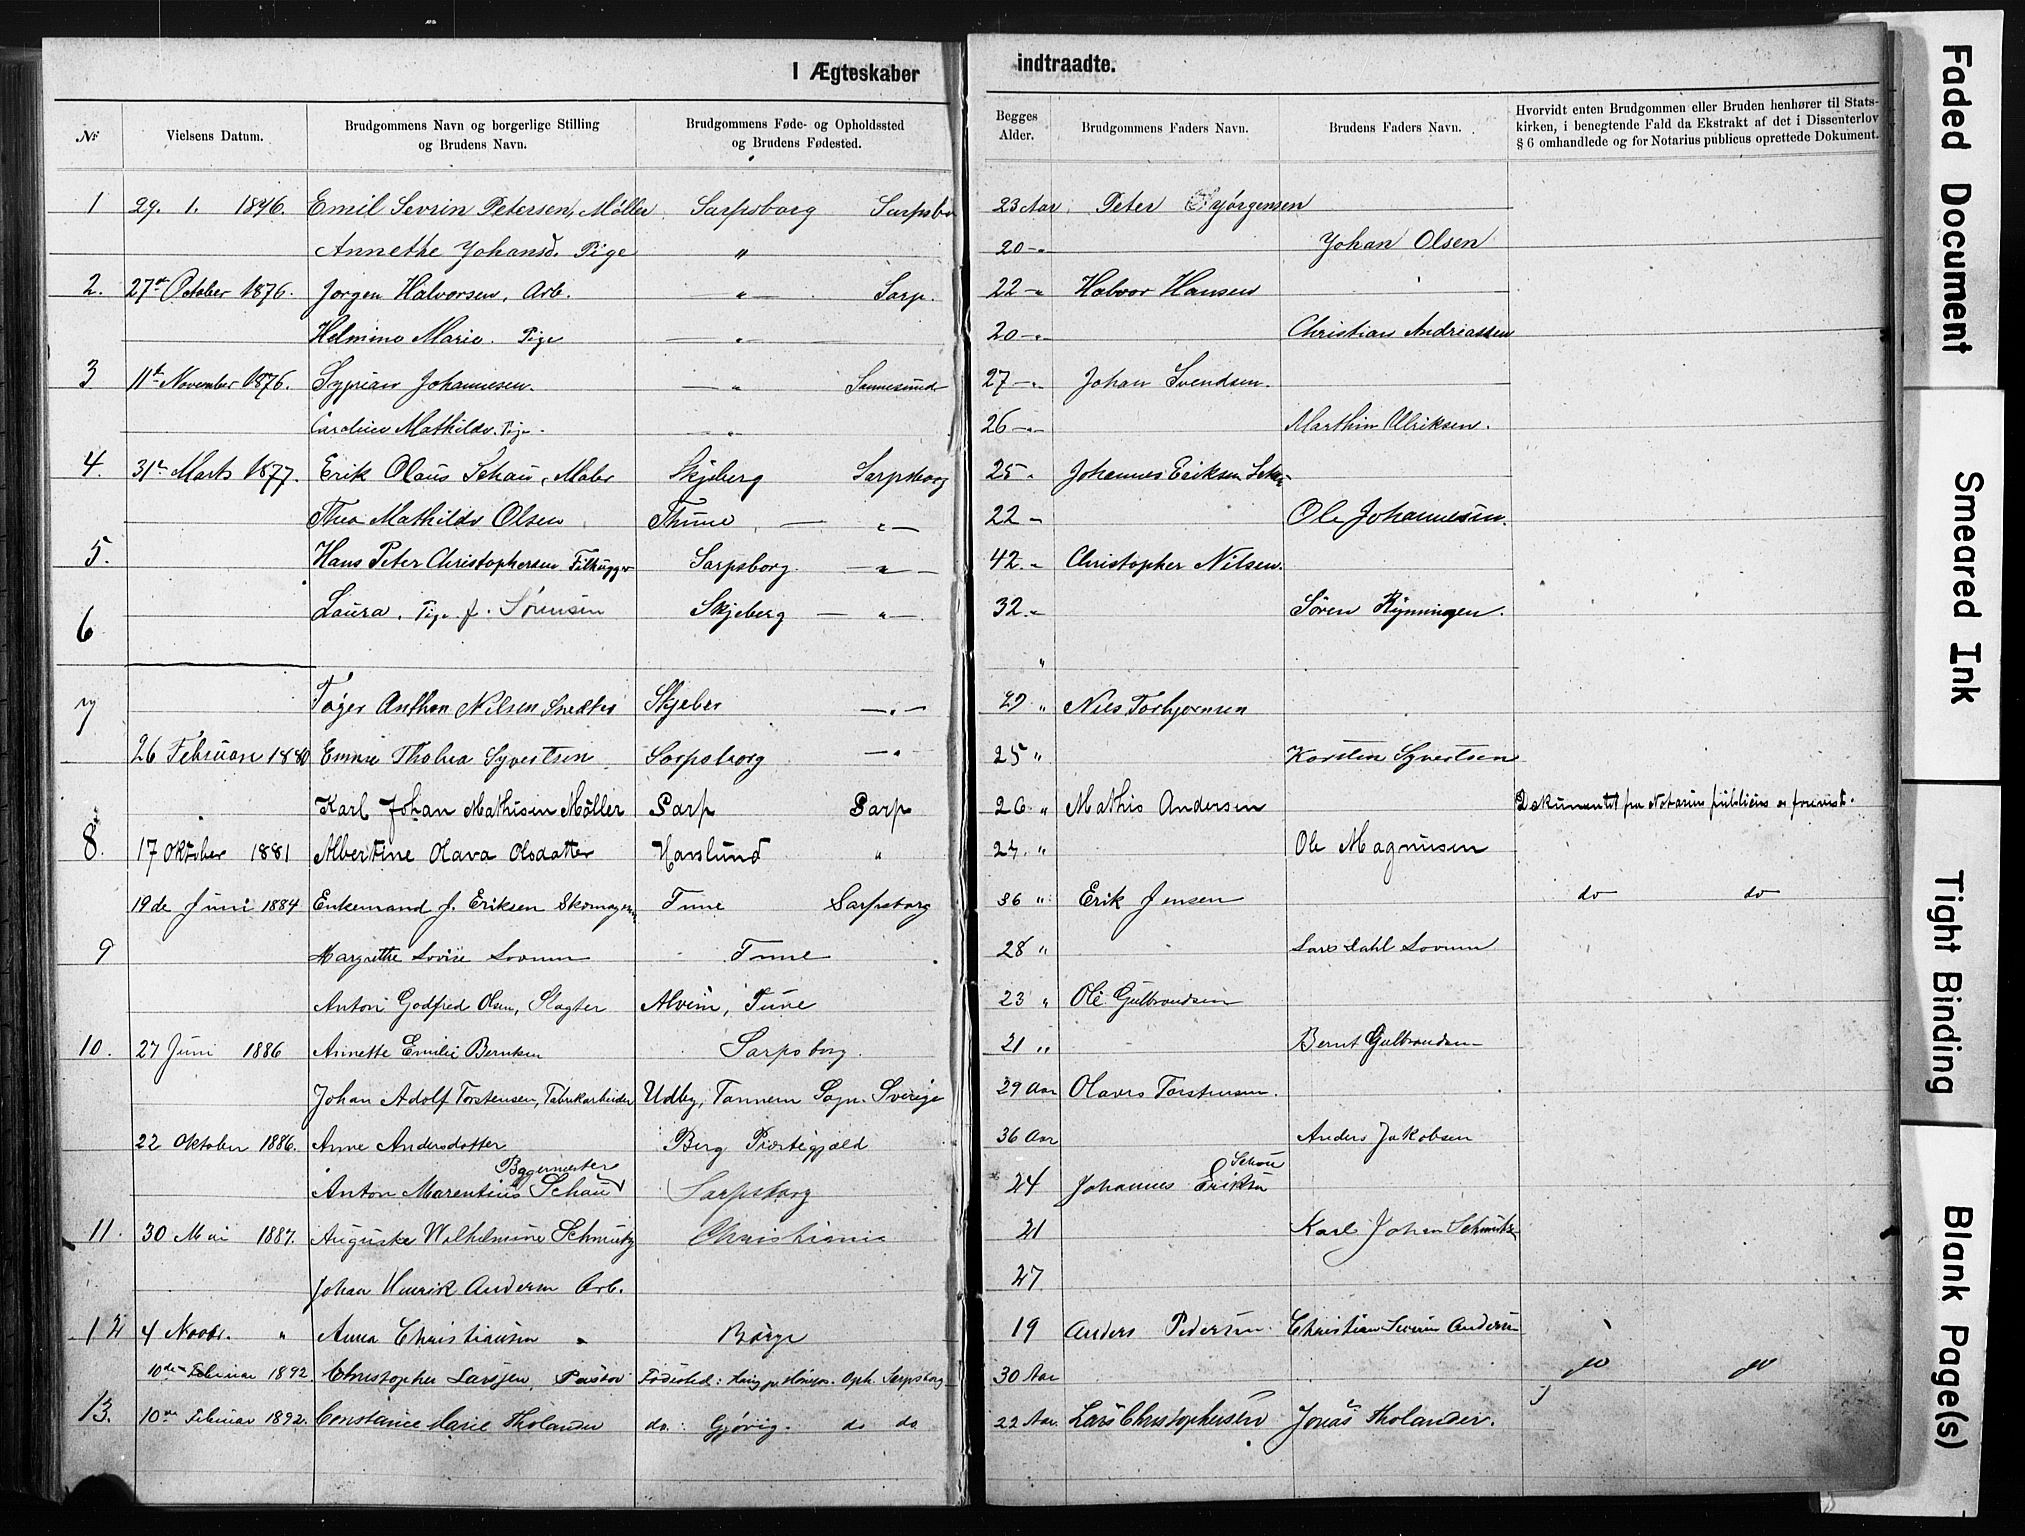 I Ægteskaber indtraadte.
№ Vielsens Datum. Brudgommens Navn og borgerlige Stilling og Brudens Navn. Brudgommens Føde- og Opholdssted og Brudens Fødested. Begges Alder. Brudgommens Faders Navn. Brudens Faders Navn. Hvorvidt enten Brudgommen eller Bruden henhører til Stats-
kirken, i benegtende Fald da Ekstrakt af det i Dissenterlov
§ 6 omhandlede og for Notarius publicus oprettede Dokument.
1 29. 1. 1876. Emil Sevrin Petersen, Møller Sarpsborg Sarpsbo 23 Aar Peter Hjørgensen
Annethe Johansd. Pige " 20 -"- Johan Olsen
2. 27de October 1876. Jorgen Halvorsen, Arb. -"- Sarp. 22 -"- Halvor Hansen
Helmine Marie. Pige -"- 20 -"- Christian Andreassen
3 11te November 1876. Syprian Johannesen. -"- Sannesund 27 -"- Johan Svendsen.
Caroline Mathilde. Pige. -"- 26 -"- Marthin Ulriksen.
4. 31te Marts 1877. Erik Olaus Schau, Maler Skjeberg Sarpsborg 25 " Johannes Eriksen
Thea Mathilde Olsen Thune -"- 22 -"- Ole Johannesen.
5. Hans Peter Christophersen Filhugger Sarpsborg -"- 42 -"- Christopher Nilsen.
6 Laura. Pige f. Sørensen Skjeberg -"- 32 -"- Søren Rynningen.
"
7 Tøger Anthon Nilsen Skjeber -"- 29 " Niels Torbjørnsen
26 Februar 1880 Emma Tholva Syvertsen Sarpsborg -"- 25 " Karsten Syvertsen
Karl Johan Mathisen Møller Sarp Sarp 26 " Mathis Andersen Dokumentet fra Notarius publicus er forevist.
8. 17 Oktober 1881 Albertine Olava Olsdatter Havslund " 24 " Ole Magnusen
19de Juni 1884 Enkemand J. Eriksen Skomager Tune Sarpsborg 36 " Erik Jensen do do
9 Margrethe Lovise Lovum Tune 28 " Lars Dahl Lovum
Anton Godfred Olsen, Slagter Alvim, Tune 23 " Ole Gulbrandsen
10. 27 Juni 1886 Annette Emilie Berntsen Sarpsborg. 21 " Bernt Gulbrandsen
Johan Adolf Torstensen, Fabrikarbeider Udby, Tannem Sogn. Sverige 29 Aar Olaves Torstensen.
22 Oktober 1886. Anne Andersdatter Berg Præstegjæld 36 Aar Anders Jakobsen
Bagermester Schou
Anton Marentius Schau Sarpsborg 24 Johannes Eriksen
11. 30 Mai 1887. Auguste Wilhelmine Schmutz Christiania 21 Karl Johan Schmutz
Johan Henrik Andersen Arb. 27
12 4 Novbr. " Anna Christiansen " Borge 19 Anders Pedersen. Christian Severin Andersen
10de Februar 1892 Christopher Larsen, Pastor Fødested: Opk. Sarpsborg 30 Aar do do
13. 10de Februar 1892. Constance Marie Tholander do.: Gjøvig. do do 22 Aar. Lars Christophersen Jonas Tholander.
Faded Document
Smeared Ink
Tight Binding
Blank Page(s)